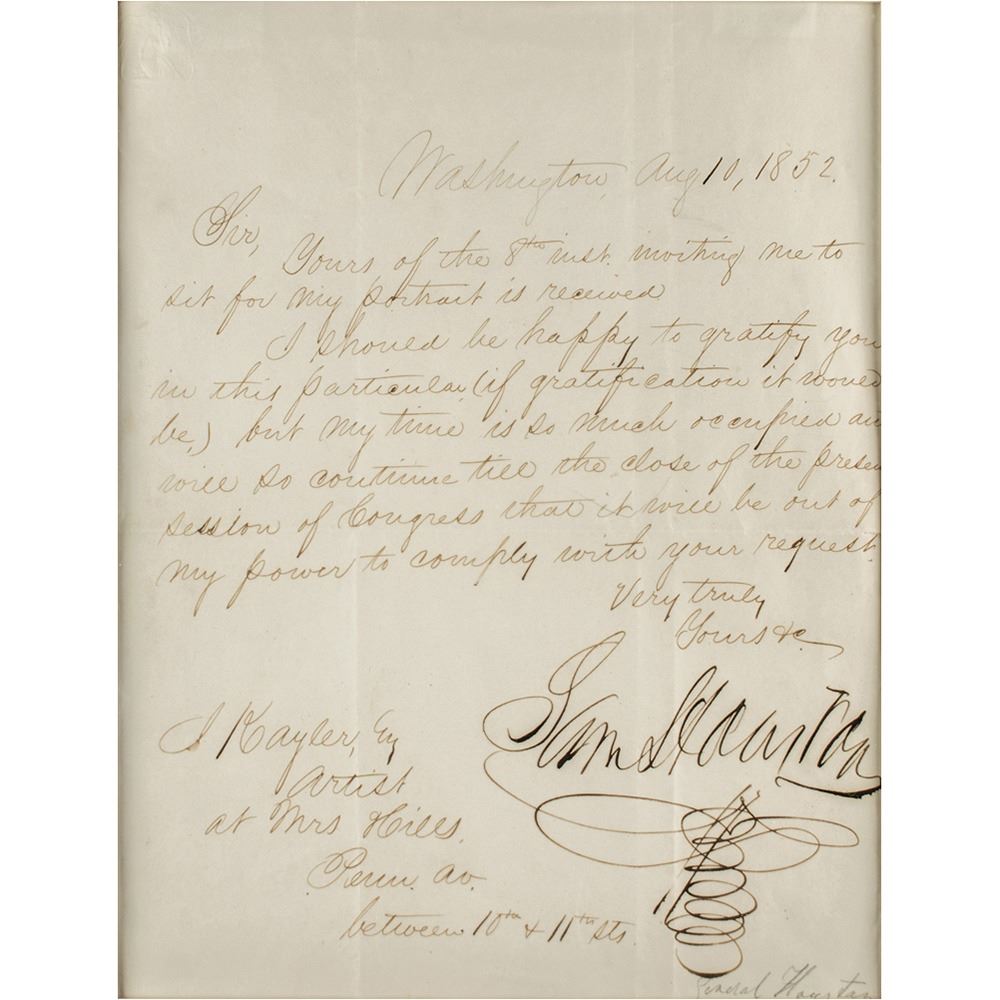 Washington, Aug 10, 1852.
Sir,
Yours of the 8th inst. inviting me to
sit for my portrait is received
I should be happy to gratify you
in this particular (if gratification it would
be,) but my time is so much occupied an
will so continue till the close of the presen
session of Congress that it will be out of
my power to comply with your request.
Very truly
Yours &c.
Sam Houston
J Kayler, Esq
Artist
at Mrs Hills.
Penn. Av.
between 10th & 11th sts.
General Houston